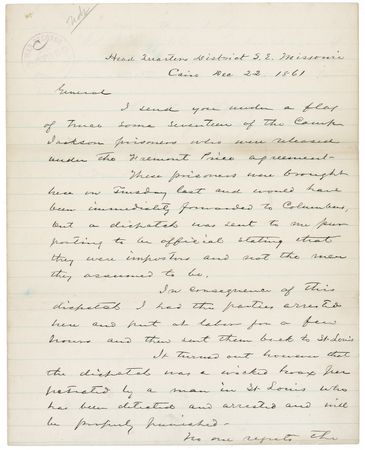 Note
Head Quarters District S. E. Missouri
Cairo Dec 22 1861
General
I send you under a flag
of truce some seventeen of the Camp
Jackson prisoners who were released
under the Fremont Price agreement-
These prisoners were brought
here on Tuesday last and would have
been immediatly forwarded to Columbus,
but a dispatch was sent to me pur
porting to be official stating that
they were impostors and not the men
they assumed to be.
In consequence of this
dispatch I had the parties arrested
here and put at labor for a few
hours and then sent them back to St Louis
It turned out however that
the dispatch was a wicked hoax per
petrated by a man in St Louis who
has been detected and arrested and will
be properly punished-
No one regrets the